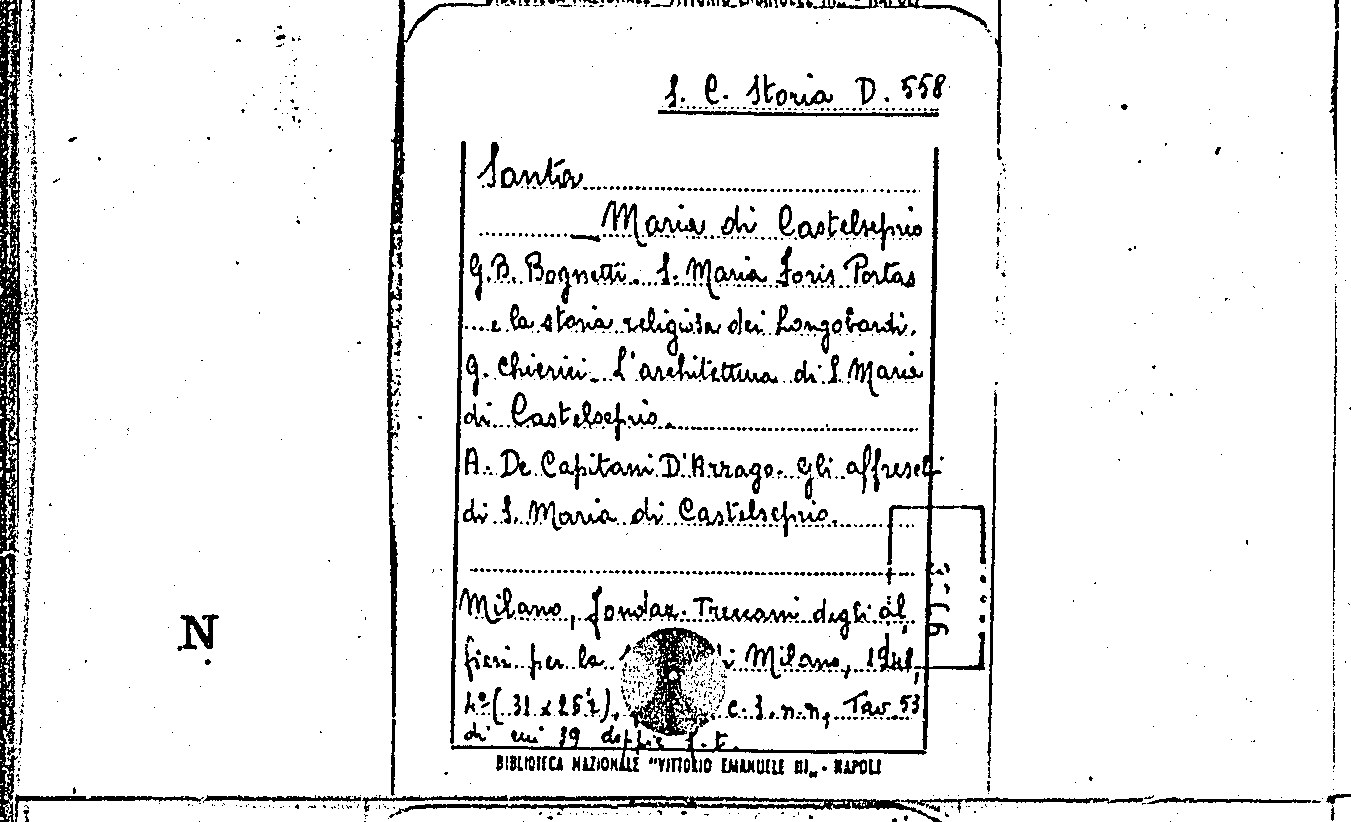 BIBLIOTECA NAZIONALE "VITTORIO EMANUELE III" - NAPOLI
S. C. Storia D. 558
Santa
Maria di Castelseprio
G.B. Bognetti. S. Maria Foris Portas
e la storia religiosa dei Longobardi.
G. Chierici. L'architettura di S. Maria
di Castelseprio.
A. De Capitani D'Arzago. Gli affreschi
di S. Maria di Castelseprio.
Milano, Fondaz. Treccani degli Al
fieri per la di Milano, 1948,
4° (31 x 25½), c. 1. n.n, Tav. 53
di cui 19 doppie f. t.
BIBLIOTECA NAZIONALE "VITTORIO EMANUELE III" - NAPOLI
N